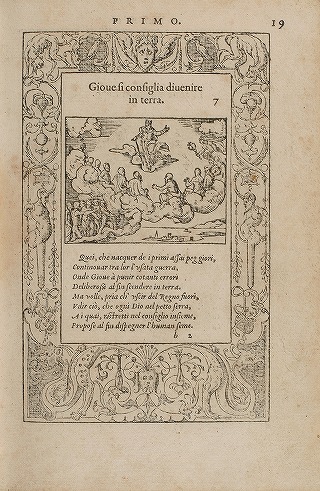 PRIMO.
19
Gioue si consiglia di uenire
in terra.
7
Quei, che nacquer de i primi assai peggiori,
Continouar tra lor l'vsata guerra,
Onde Gioue à punir cotanti errori
Deliberossi al fin scendere in terra.
Ma volle, pria ch' vscir del Regno fuori,
Vdir ciò, che ogni Dio nel petto serra,
A i quai, ristretti nel consiglio insieme,
Propose al fin dispegner l'human seme.
b 2